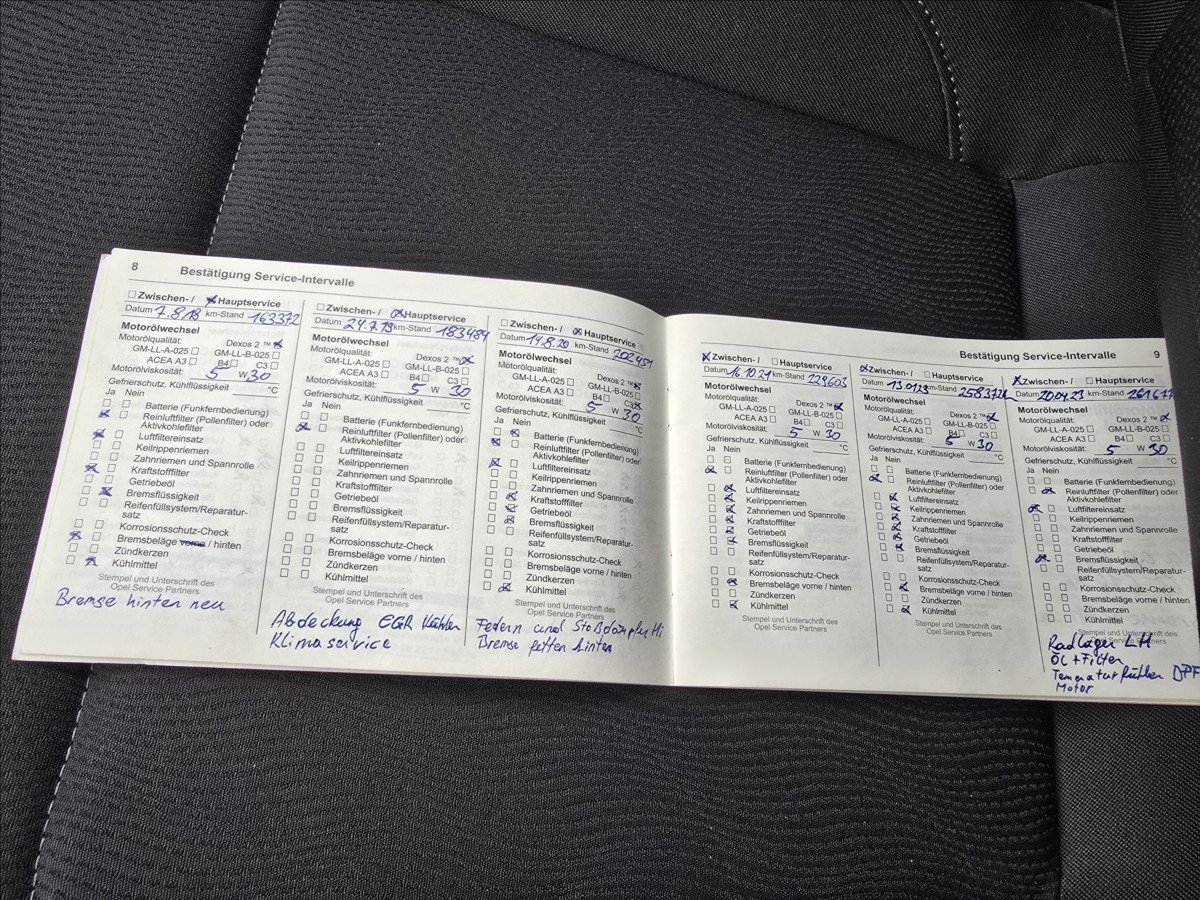 8
Bestätigung Service-Intervalle
Zwischen- / Hauptservice
Datum 7.8.18 km-Stand 163372
Motorölwechsel
Motorölqualität: Dexos 2 ™
GM-LL-A-025 GM-LL-B-025
ACEA A3 B4 C3
Motorviskosität: 5 W 30
Gefrierschutz, Kühlflüssigkeit °C
Ja Nein
Batterie (Funkfernbedienung)
Reinluftfilter (Pollenfilter) oder
Aktivkohlefilter
Luftfiltereinsatz
Keilrippenriemen
Zahnriemen und Spannrolle
Kraftstofffilter
Getriebeöl
Bremsflüssigkeit
Reifenfüllsystem/Reparatur-
satz
Korrosionsschutz-Check
Bremsbeläge vorne / hinten
Zündkerzen
Kühlmittel
Stempel und Unterschrift des
Opel Service Partners
Bremse hinten neu
Zwischen- / Hauptservice
Datum 24.7.19 km-Stand 183484
Motorölwechsel
Motorölqualität: Dexos 2 ™
GM-LL-A-025 GM-LL-B-025
ACEA A3 B4 C3
Motorölviskosität: 5 W 30
Gefrierschutz, Kühlflüssigkeit °C
Ja Nein
Batterie (Funkfernbedienung)
Reinluftfilter (Pollenfilter) oder
Aktivkohlefilter
Luftfiltereinsatz
Keilrippenriemen
Zahnriemen und Spannrolle
Kraftstofffilter
Getriebeöl
Bremsflüssigkeit
Reifenfüllsystem/Reparatur-
satz
Korrosionsschutz-Check
Bremsbeläge vorne / hinten
Zündkerzen
Kühlmittel
Stempel und Unterschrift des
Opel Service Partners
Abdeckung EGR
Klimaservice
Zwischen- / Hauptservice
Datum 19.8.20 km-Stand 202451
Motorölwechsel
Motorölqualität: Dexos 2 ™
GM-LL-A-025 GM-LL-B-025
ACEA A3 B4 C3
Motorölviskosität: 5 W 30
Gefrierschutz, Kühlflüssigkeit °C
Ja Nein
Batterie (Funkfernbedienung)
Reinluftfilter (Pollenfilter) oder
Aktivkohlefilter
Luftfiltereinsatz
Keilrippenriemen
Zahnriemen und Spannrolle
Kraftstofffilter
Getriebeöl
Bremsflüssigkeit
Reifenfüllsystem/Reparatur-
satz
Korrosionsschutz-Check
Bremsbeläge vorne / hinten
Zündkerzen
Kühlmittel
Stempel und Unterschrift des
Opel Service Partners
Federn und Stoßdämpfer Hi
Bremse hinten
Bestätigung Service-Intervalle
9
Zwischen- / Hauptservice
Datum 16.10.21 km-Stand 229603
Motorölwechsel
Motorölqualität: Dexos 2 ™
GM-LL-A-025 GM-LL-B-025
ACEA A3 B4 C3
Motorölviskosität: 5 W 30
Gefrierschutz, Kühlflüssigkeit °C
Ja Nein
Batterie (Funkfernbedienung)
Reinluftfilter (Pollenfilter) oder
Aktivkohlefilter
Luftfiltereinsatz
Keilrippenriemen
Zahnriemen und Spannrolle
Kraftstofffilter
Getriebeöl
Bremsflüssigkeit
Reifenfüllsystem/Reparatur-
satz
Korrosionsschutz-Check
Bremsbeläge vorne / hinten
Zündkerzen
Kühlmittel
Stempel und Unterschrift des
Opel Service Partners
Zwischen- / Hauptservice
Datum km-Stand
Motorölwechsel
Motorölqualität: Dexos 2 ™
GM-LL-A-025 GM-LL-B-025
ACEA A3 B4 C3
Motorölviskosität: 5 W 30
Gefrierschutz, Kühlflüssigkeit °C
Ja Nein
Batterie (Funkfernbedienung)
Reinluftfilter (Pollenfilter) oder
Aktivkohlefilter
Luftfiltereinsatz
Keilrippenriemen
Zahnriemen und Spannrolle
Kraftstofffilter
Getriebeöl
Bremsflüssigkeit
Reifenfüllsystem/Reparatur-
satz
Korrosionsschutz-Check
Bremsbeläge vorne / hinten
Zündkerzen
Kühlmittel
Stempel und Unterschrift des
Opel Service Partners
Zwischen- / Hauptservice
Datum km-Stand
Motorölwechsel
Motorölqualität: Dexos 2 ™
GM-LL-A-025 GM-LL-B-025
ACEA A3 B4 C3
Motorölviskosität: 5 W 30
Gefrierschutz, Kühlflüssigkeit °C
Ja Nein
Batterie (Funkfernbedienung)
Reinluftfilter (Pollenfilter) oder
Aktivkohlefilter
Luftfiltereinsatz
Keilrippenriemen
Zahnriemen und Spannrolle
Kraftstofffilter
Getriebeöl
Bremsflüssigkeit
Reifenfüllsystem/Reparatur-
satz
Korrosionsschutz-Check
Bremsbeläge vorne / hinten
Zündkerzen
Kühlmittel
Stempel und Unterschrift des
Opel Service Partners
Radlager LH
Öl + Filter
Temperaturfühler DPF
Motor